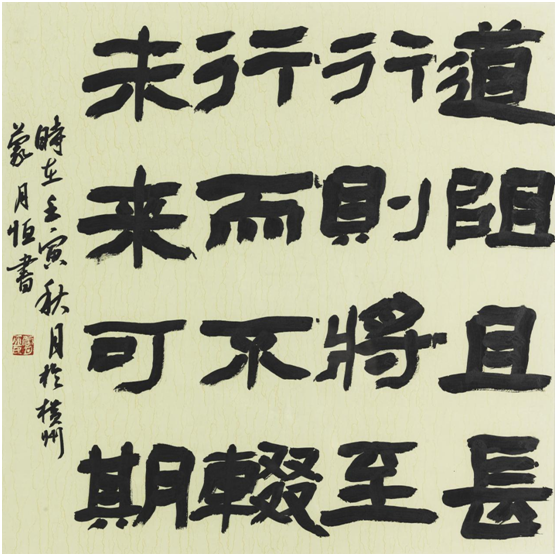 道阻且長
行則將至
行而不輟
未来可期
時在壬寅秋月於横州
蒙月恒書